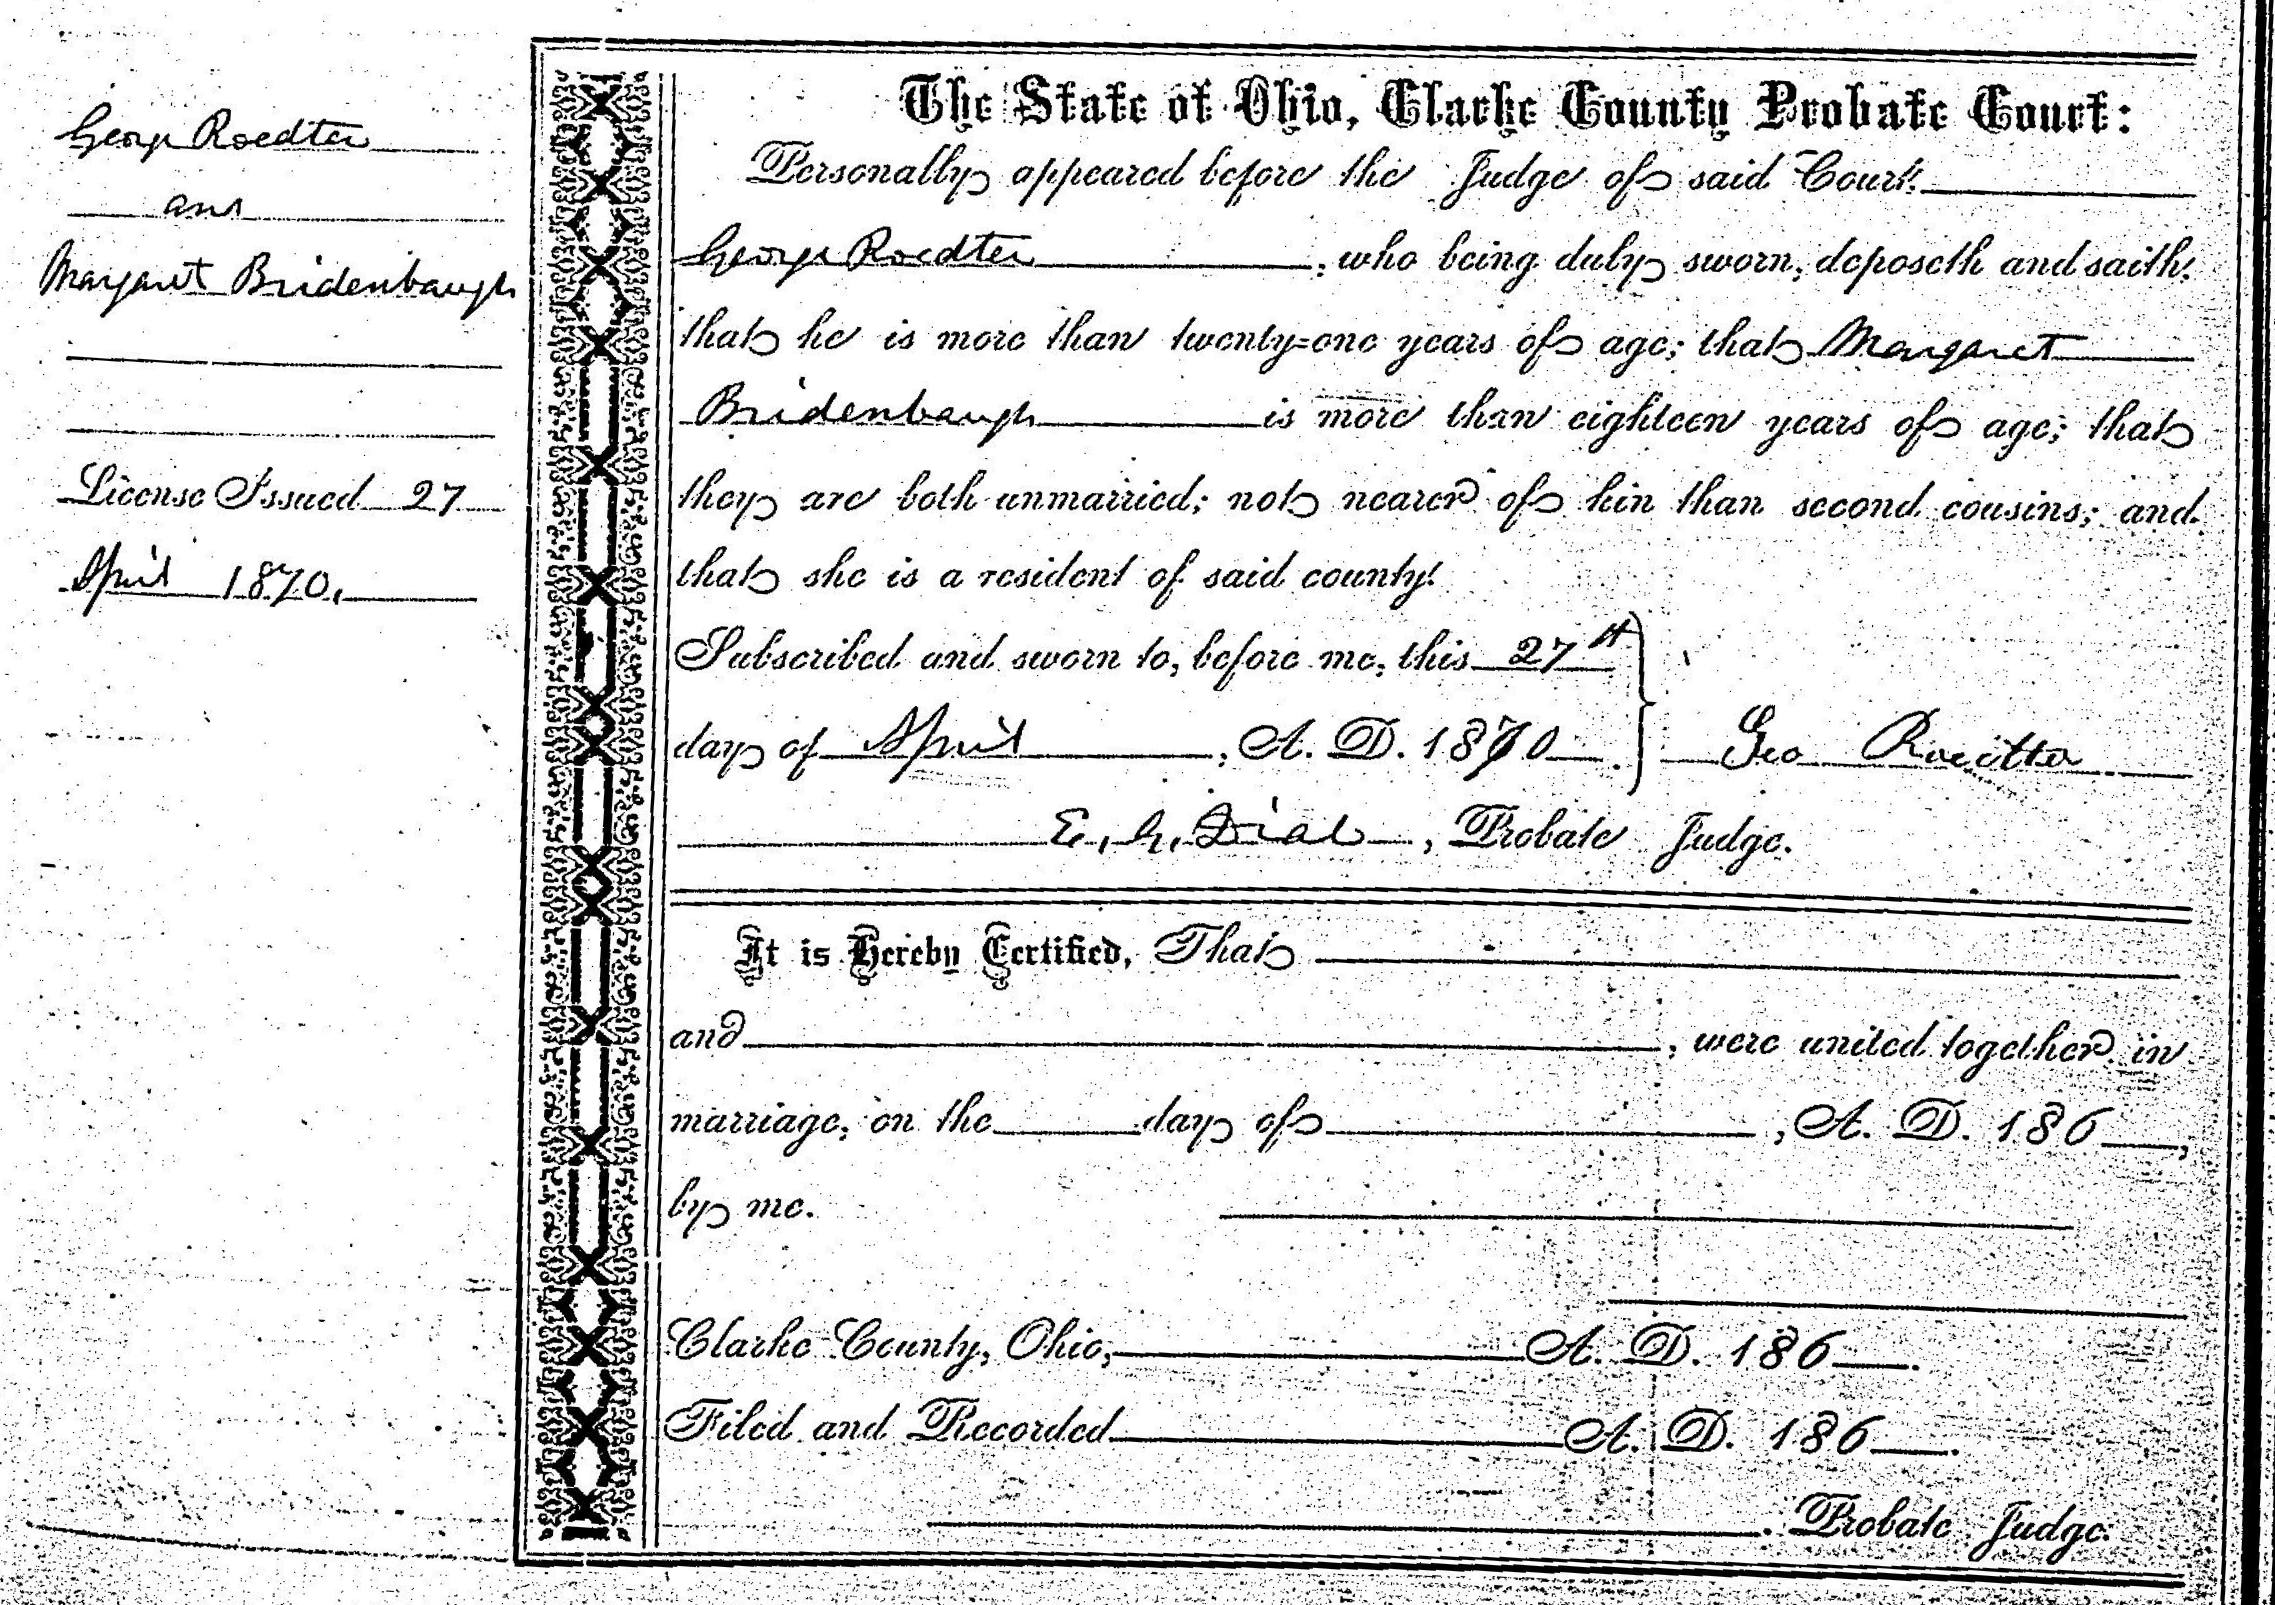 George Roedter
and
Margaret Bridenbaugh
License Issued 27
April 1870.
The State of Ohio, Clarke County Probate Court:
Personally appeared before the Judge of said Court
George Roedter, who being duly sworn, deposeth and saith
that he is more than twenty=one years of age; that Margaret
Bridenbaugh is more than eighteen years of age; that
they are both unmarried; not nearer of kin than second cousins; and
that she is a resident of said county.
Subscribed and sworn to, before me, this 27th
day of April, A. D. 1870. Geo Roedter
E. G. Dial, Probate Judge.
It is Hereby Certified, That
and , were united together in
marriage, on the day of , A. D. 186 ,
by me.
Clarke County, Ohio, A. D. 186 .
Filed and Recorded A. D. 186 .
. Probate Judge.